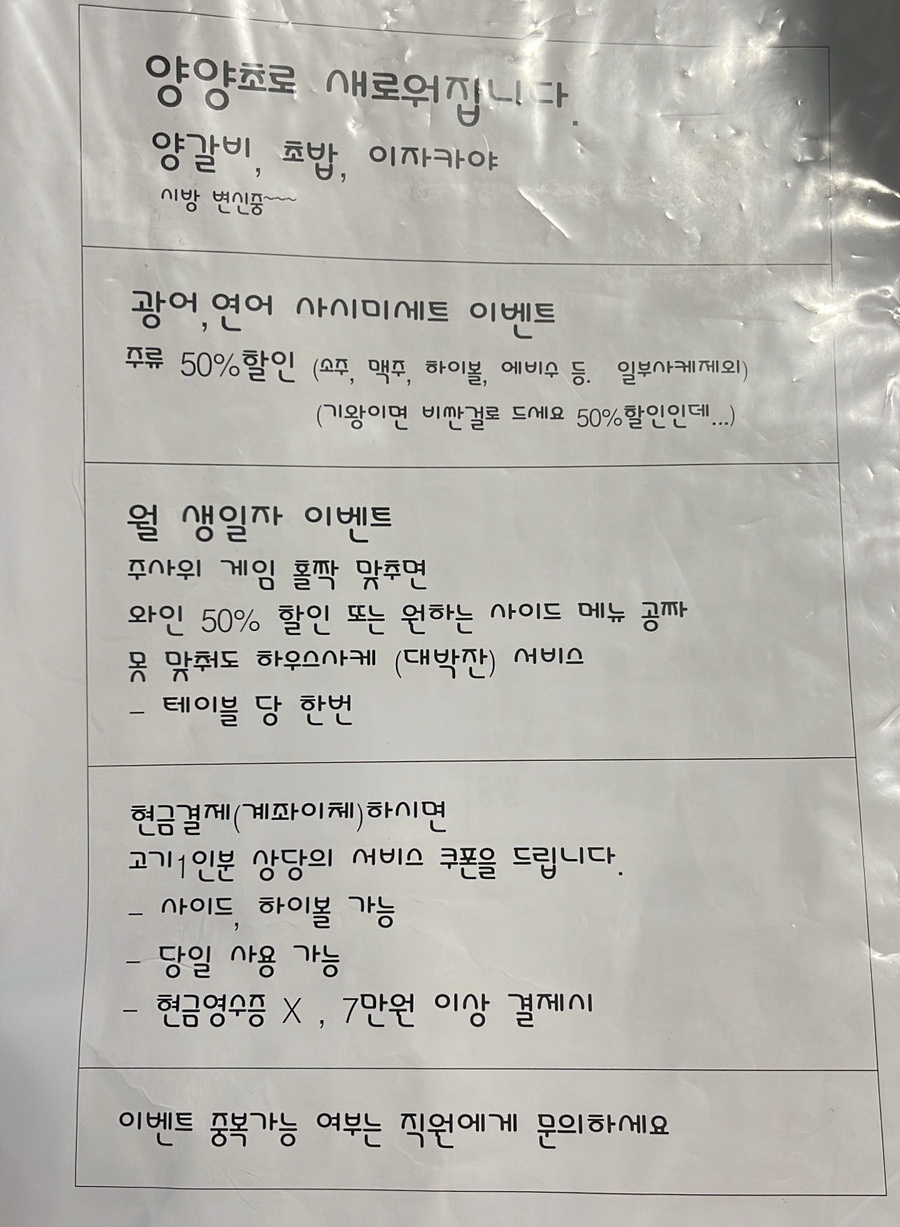 양양쵸로 새로워집니다.
양갈비, 초밥, 이자카야
시방 변신중~~~
광어,연어 사시미세트 이벤트
주류 50%할인 (소주, 맥주, 하이볼, 에비수 등. 일부사케제외)
(기왕이면 비싼걸로 드세요 50%할인인데...)
월 생일자 이벤트
주사위 게임 홀짝 맞추면
와인 50% 할인 또는 원하는 사이드 메뉴 공짜
못 맞춰도 하우스사케 (대박잔) 서비스
- 테이블 당 한번
현금결제(계좌이체)하시면
고기1인분 상당의 서비스 쿠폰을 드립니다.
- 사이드, 하이볼 가능
- 당일 사용 가능
- 현금영수증 X , 7만원 이상 결제시
이벤트 중복가능 여부는 직원에게 문의하세요